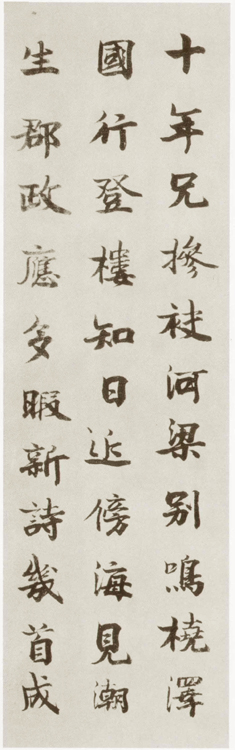 十年兄摻袂河梁別鳴橈澤
國行登樓知日近傍海見潮
生郡政應多暇新詩幾首成